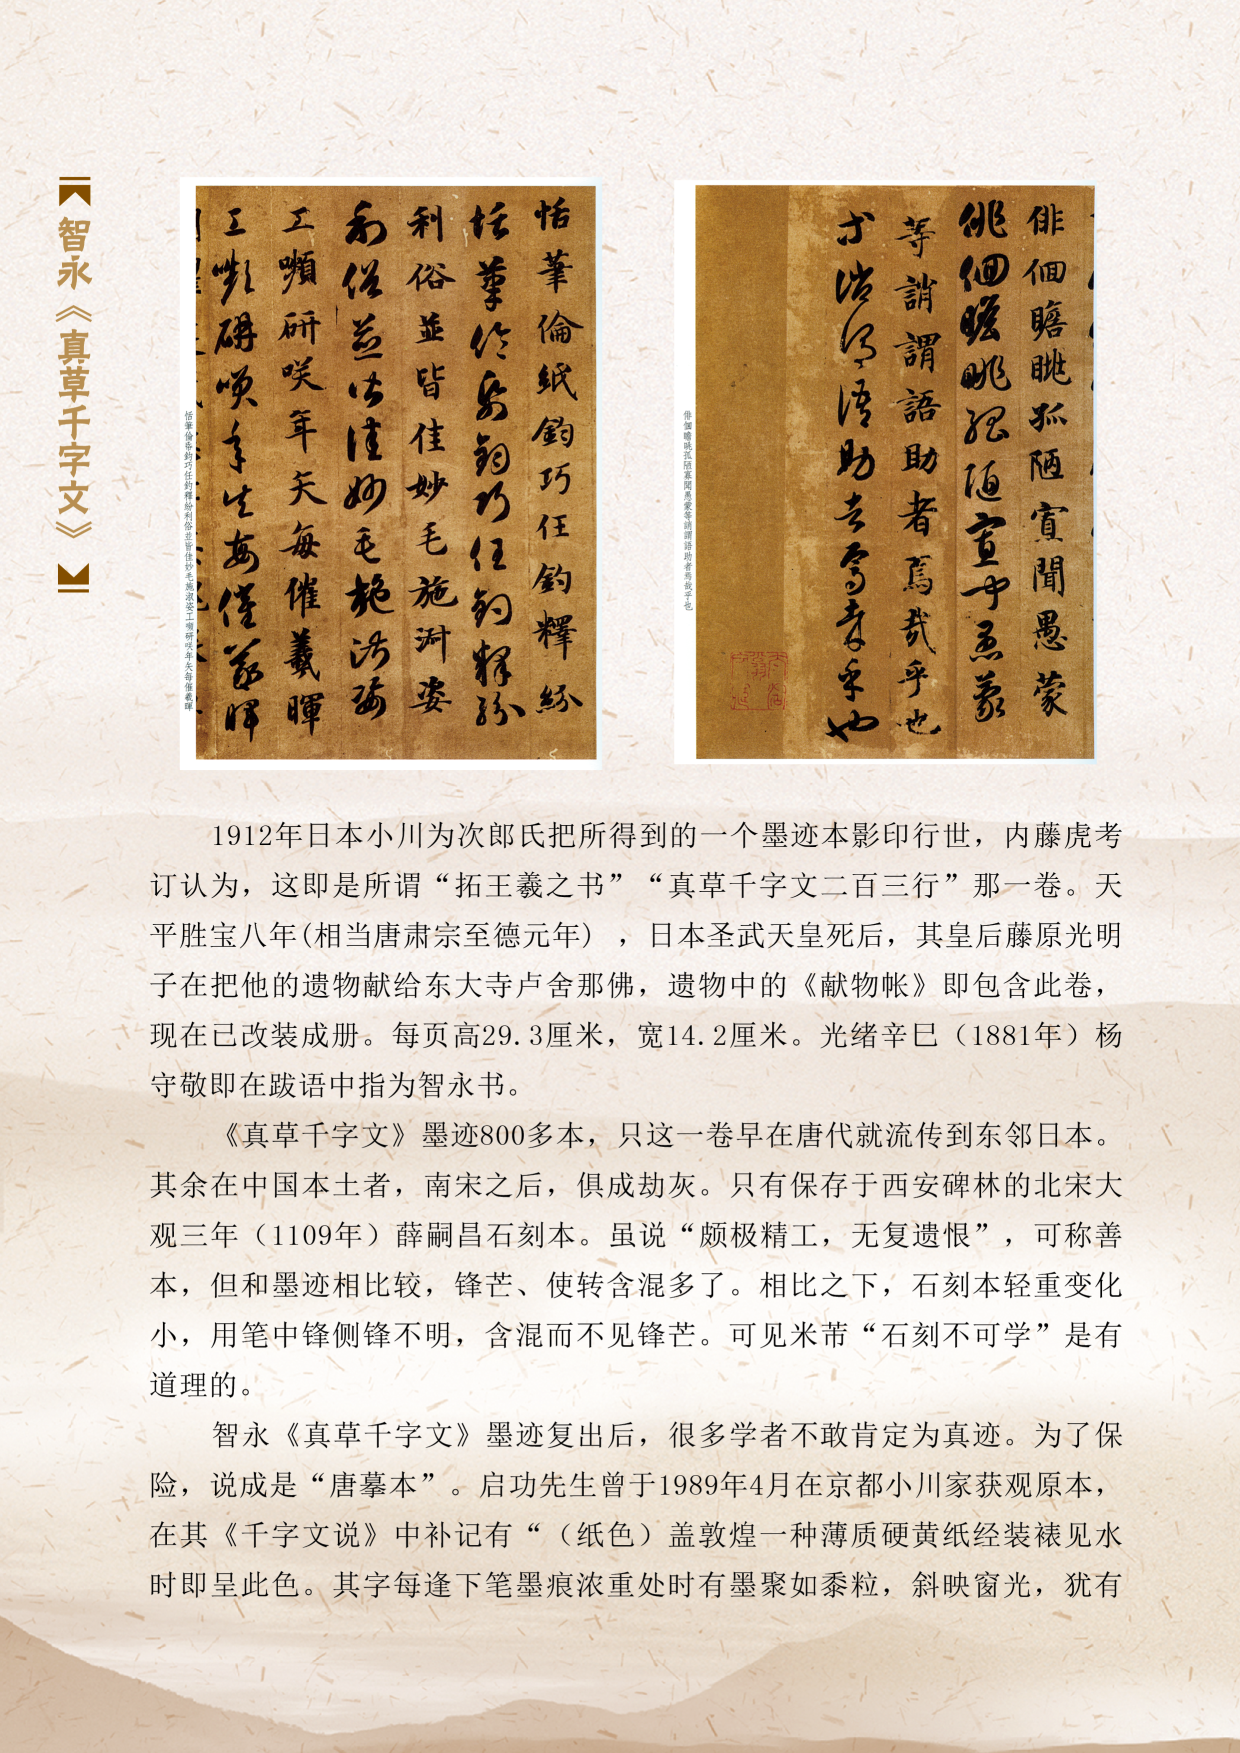 智永《真草千字文》
恬筆倫紙鈞巧任釣釋紛
利俗並皆佳妙毛施淑姿
工嚬研咲年矢每催羲暉
恬筆倫紙鈞巧任釣釋紛利俗並皆佳妙毛施淑姿工嚬研咲年矢每催羲暉
俳佪瞻眺孤陋寡聞愚蒙
等誚謂語助者焉哉乎也
俳佪瞻眺孤陋寡聞愚蒙等誚謂語助者焉哉乎也
1912年日本小川为次郎氏把所得到的一个墨迹本影印行世，内藤虎考
订认为，这即是所谓“拓王羲之书”“真草千字文二百三行”那一卷。天
平胜宝八年(相当唐肃宗至德元年) ，日本圣武天皇死后，其皇后藤原光明
子在把他的遗物献给东大寺卢舍那佛，遗物中的《献物帐》即包含此卷，
现在已改装成册。每页高29.3厘米，宽14.2厘米。光绪辛巳（1881年）杨
守敬即在跋语中指为智永书。
《真草千字文》墨迹800多本，只这一卷早在唐代就流传到东邻日本。
其余在中国本土者，南宋之后，俱成劫灰。只有保存于西安碑林的北宋大
观三年（1109年）薛嗣昌石刻本。虽说“颇极精工，无复遗恨”，可称善
本，但和墨迹相比较，锋芒、使转含混多了。相比之下，石刻本轻重变化
小，用笔中锋侧锋不明，含混而不见锋芒。可见米芾“石刻不可学”是有
道理的。
智永《真草千字文》墨迹复出后，很多学者不敢肯定为真迹。为了保
险，说成是“唐摹本”。启功先生曾于1989年4月在京都小川家获观原本，
在其《千字文说》中补记有“（纸色）盖敦煌一种薄质硬黄纸经装裱见水
时即呈此色。其字每逢下笔墨痕浓重处时有墨聚如黍粒，斜映窗光，犹有